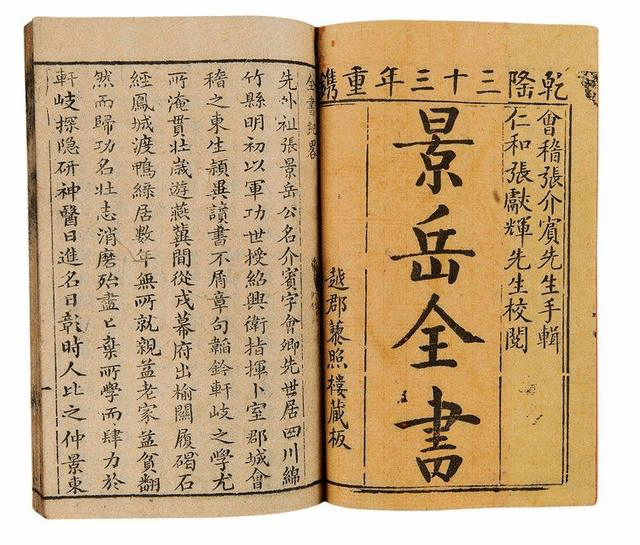 乾隆三十三年重鐫
會稽張介賓先生手輯
仁和張獻輝先生校閱
景岳全書
越郡藜照樓藏板
全書紀畧
先外祖張景岳公名介賓字會卿先世居四川綿
竹縣明初以軍功世授紹興衛指揮卜室郡城會
稽之東生頴異讀書不屑章句韜鈐軒岐之學尤
所淹貫壯歲遊燕冀間從戎幕府出榆關履碣石
經鳳城渡鴨綠居數年無所就親益老家益貧翻
然而歸功名壯志消磨殆盡乃棄所學而肆力於
軒岐探隠研神醫日進名日彰時人比之仲景東